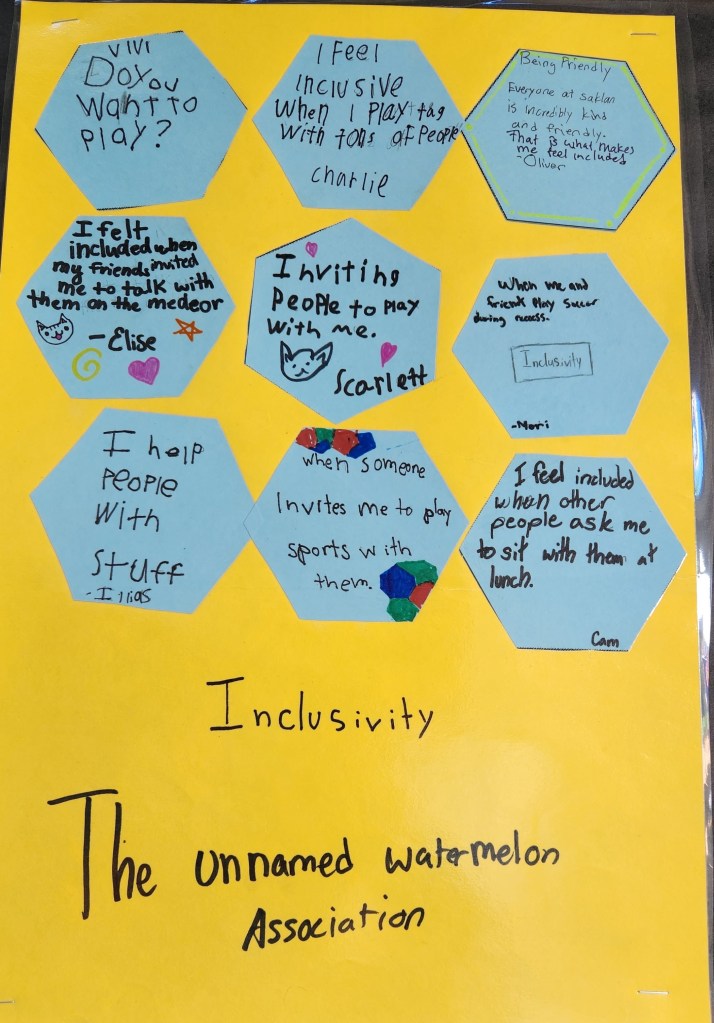 VIVI
Do you
Want to
play?
I Feel
Inclusive
When I Play tag
With tons of People
charlie
Being Friendly
Everyone at saklan
is incredibly kind
and friendly.
That is what makes
me feel includes
-Oliver
I felt
included when
my friends invited
me to talk with
them on the medeor
-Elise
Inviting
People to play
With me.
Scarlett
When me and
friend Play
during recess.
Inclusivity
-Mori
I help
PeoPle
With
Stuff
when someone
Invites me to play
sports with
them.
I feel included
when other
people ask me
to sit with them at
lunch.
Cam
Inclusivity
The unnamed watermelon
Association